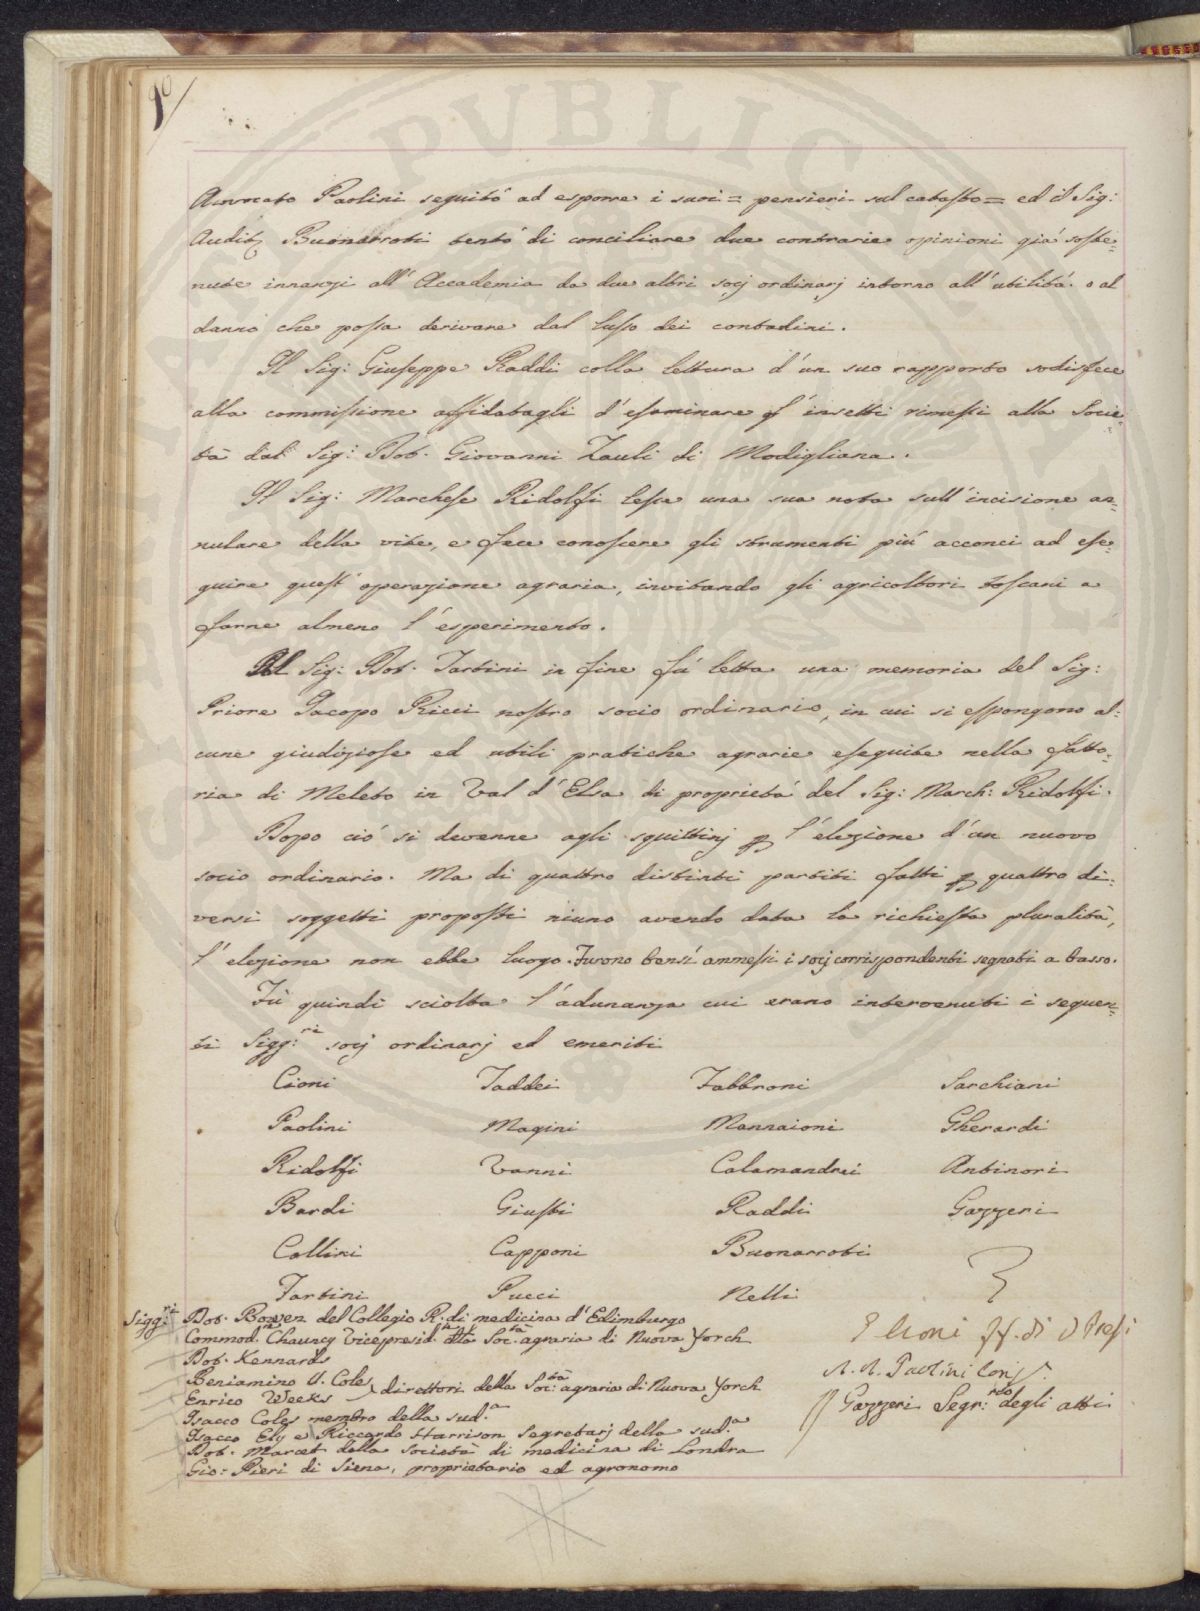 Avvocato Paolini seguitò ad esporre i suoi = pensieri sul catasto = ed il Sig:
Audit.e Buonarroti tentò di conciliare due contrarie opinioni già soste=
nute innanzi all' Accademia da due altri socj ordinarj intorno all' utilità o al
danno che possa derivare dal lusso dei contadini.
Il Sig: Giuseppe Raddi colla lettura d'un suo rapporto sodisfece
alla commissione affidatagli d'esaminare gl' insetti rimessi alla Socie=
tà dal Sig: Dot. Giovanni Zauli di Modigliana.
Il Sig: Marchese Ridolfi lesse una sua nota sull' incisione an=
nulare della vite, e fece conoscere gli strumenti più acconci ad ese=
guire quest' operazione agraria, invitando gli agricoltori toscani a
farne almeno l'esperimento.
Dal Sig: Dot. Tartini in fine fù letta una memoria del Sig:
Priore Jacopo Ricci nostro socio ordinario, in cui si espongono al=
cune giudiziose ed utili pratiche agrarie eseguite nella fatto=
ria di Meleto in Val d' Elsa di proprietà del Sig: March: Ridolfi.
Dopo ciò si devenne agli squittinj p l'elezione d'un nuovo
socio ordinario. Ma di quattro distinti partiti fatti p quattro di=
versi soggetti proposti niuno avendo data la richiesta pluralità,
l' elezione non ebbe luogo. Furono bensì ammessi i socj corrispondenti segnati a basso.
Fù quindi sciolta l'adunanza cui erano intervenuti i seguen=
ti Sigg:ri socj ordinarj ed emeriti
Cioni Taddei Fabbroni Sarchiani
Paolini Magini Mannaioni Gherardi
Ridolfi Vanni Calamandrei Antinori
Bardi Giusti Raddi Gazzeri
Collini Capponi Buonarroti
Tartini Pucci Nelli
Sigg:ri Dot. Bowen del Collegio R. di medicina d'Edimburgo
Commod. Chauncy Vicepresid. della Soc:tà agraria di Nuova Yorch
Dot. Kennards
Beniamino U. Coles
Enrico Weeks direttori della Soc:tà agraria di Nuova Yorch
Isacco Coles membro della sud.a
Isacco Ely e Riccardo Harrison segretarj della sud.a
Dot. Marcet della società di medicina di Londra
Gio: Pieri di Siena, proprietario ed agronomo
Cioni ff. di V Presi
A. A. Paolini Cons.
Gazzeri Segr:rio degli atti